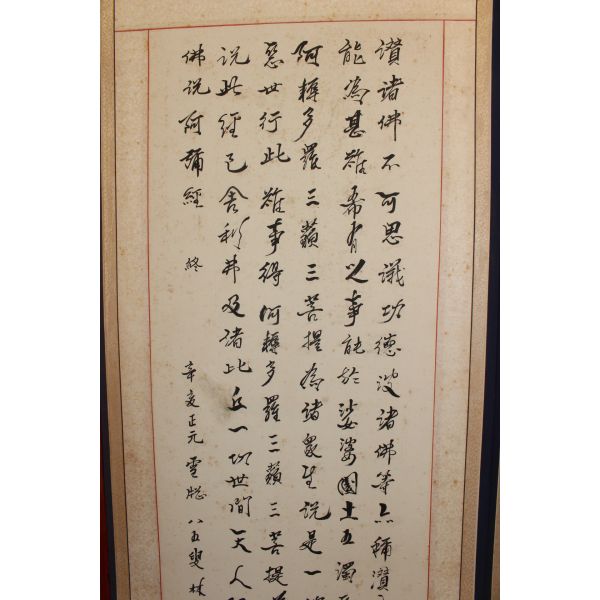 讃諸佛不可思議功德彼諸佛等亦稱讃
能為甚難希有之事能於娑婆國土五濁
阿耨多羅三藐三菩提為諸眾生說是一
惡世行此難事得阿耨多羅三藐三菩提
說此經已舍利弗及諸比丘一切世間天人
佛說阿彌經 終
辛亥正元 雪牕 八五叟 林